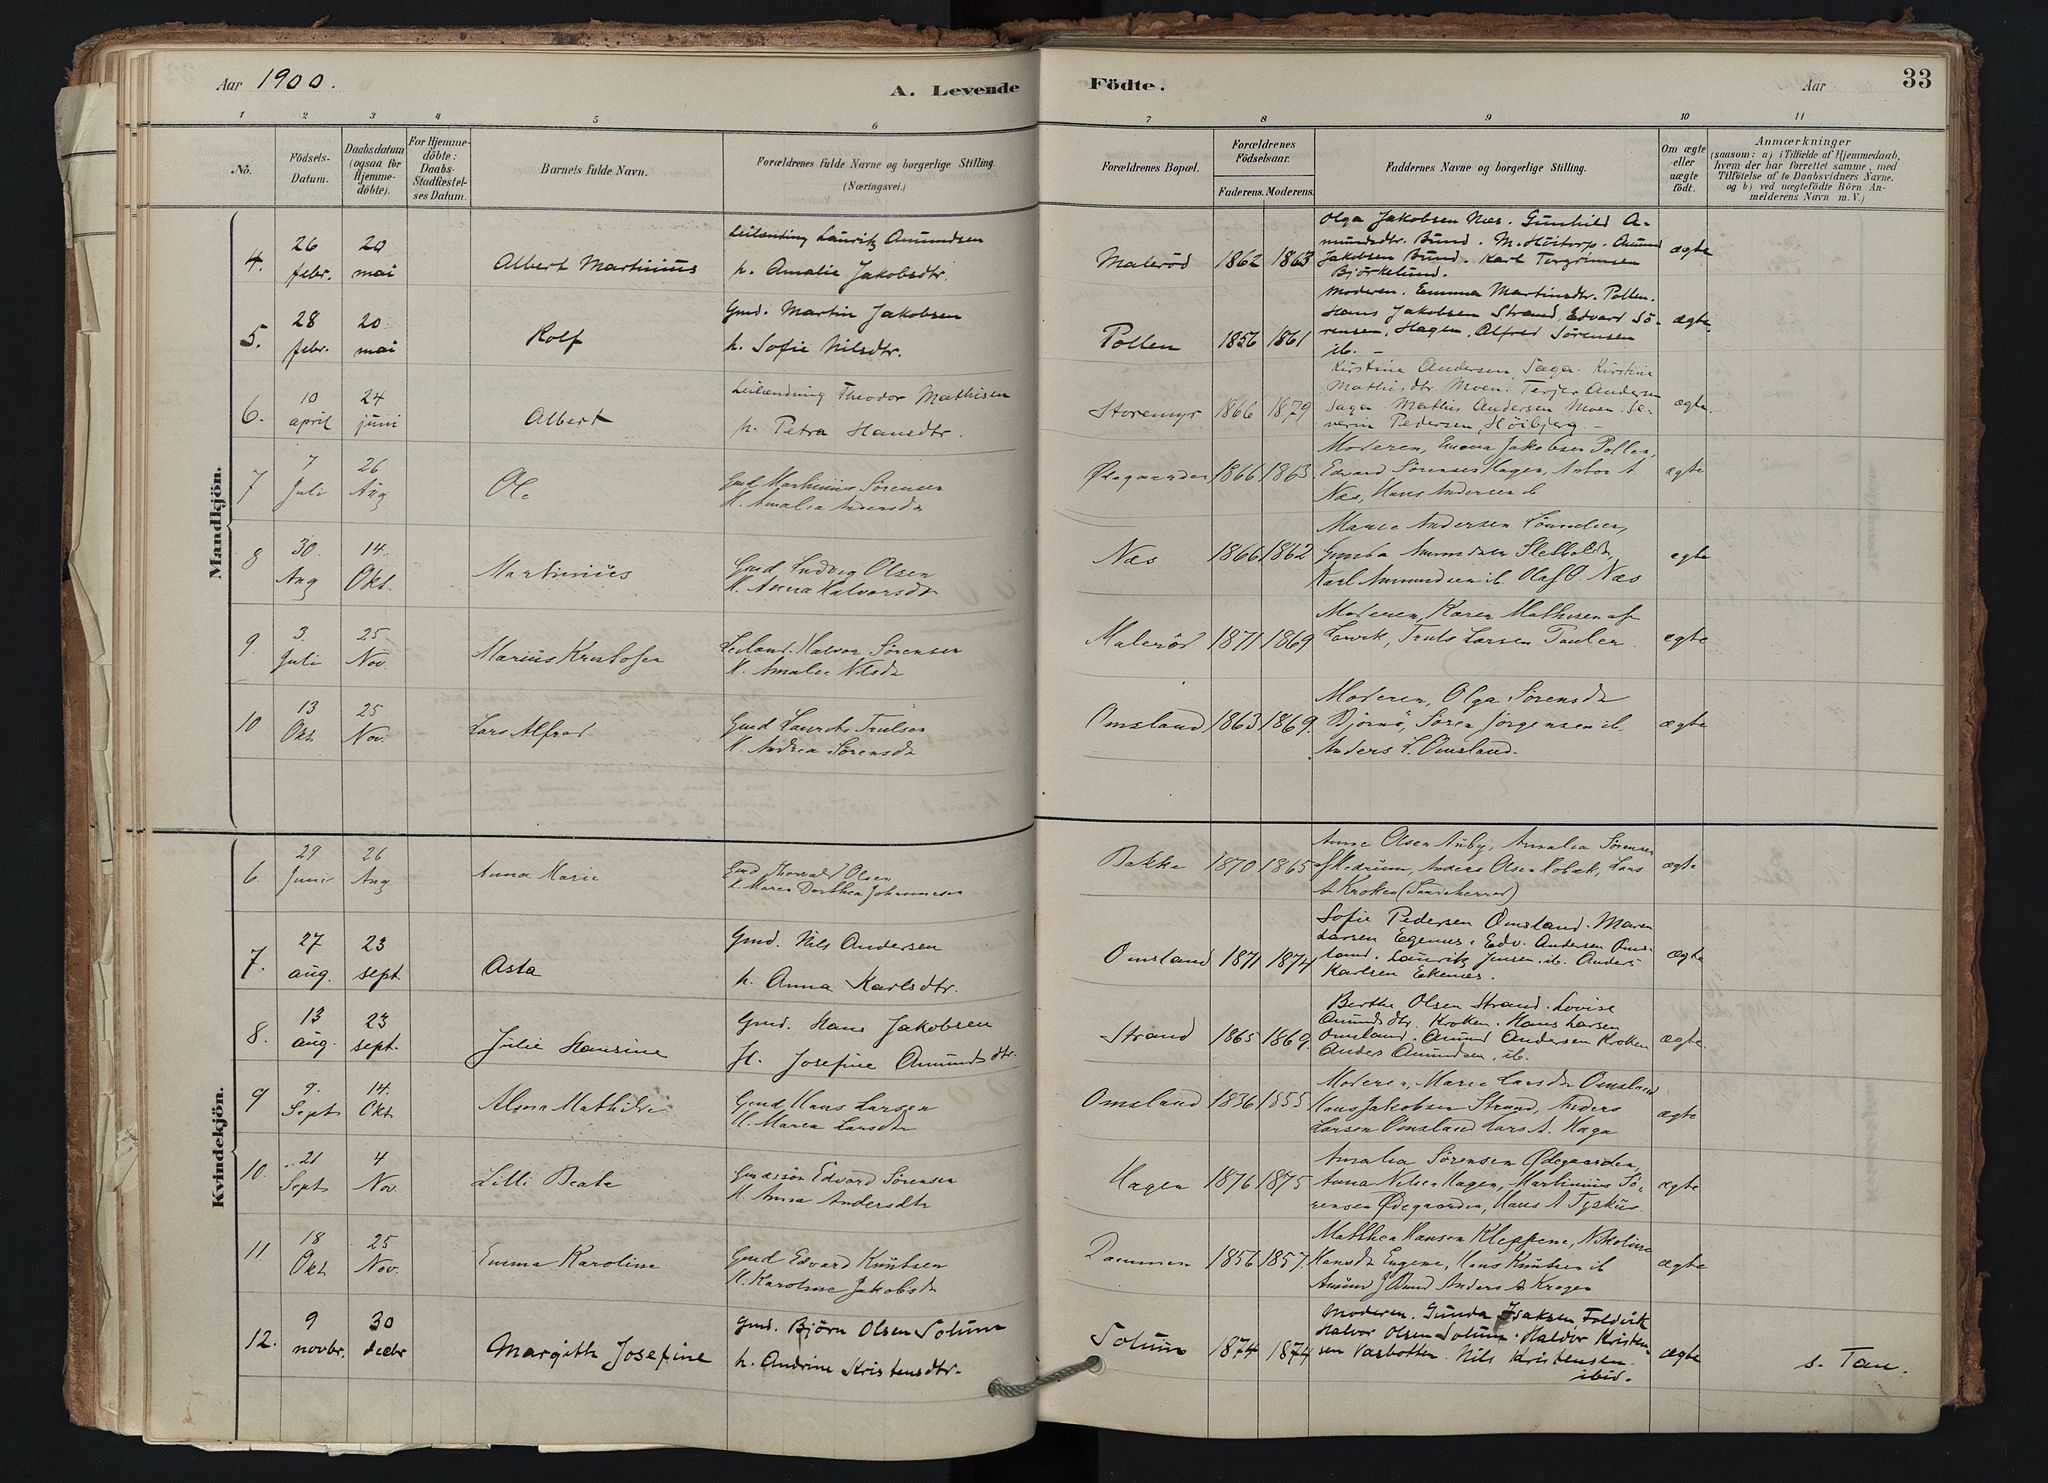 Aar 1900.
A. Levende
Födte.
Aar
33
1 2 3 4 5 6 7 8 9 10 11
No.
Födsels-
Datum.
Daabsdatum
(ogsaa for
Hjemme-
döbte).
For Hjemme-
döbte:
Daabs-
Stadfæstel-
ses Datum.
Barnets fulde Navn.
Forældrenes fulde Navne og borgerlige Stilling.
(Næringsvei.)
Forældrenes Bopæl.
Forældrenes
Födselsaar.
Faderens. Moderens.
Faddernes Navne og borgerlige Stilling.
Om ægte
eller
uægte
födt.
Anmærkninger
(saasom: a) i Tilfælde af Hjemmedaab,
hvem der har forrettet samme, med
Tilföielse af to Daabsvidners Navne.
og b) ved uægtefödte Börn An-
melderens Navn m. V.)
Mandkjön.
4. 26 febr. 20 mai Albert Martinius
Leilænding Lauritz Amundsen
h. Amalie Jakobsdtr.
Malerød 1862 1863
Olga Jakobsen Næs. Gunhild A-
mundsdtr. Bund. M. Huitorp. Amund
Jakobsen Bund. Karl Torgrimsen
Björkelund.
ægte
5. 28 febr. 20 mai Rolf
Gmd. Martin Jakobsen
h. Sofie Nilsdtr.
Pollen 1856 1861
Moderen. Emma Martinsdtr. Pollen.
Hans Jakobsen Strand, Edvard Sö-
rensen, Hagen. Alfred Sørensen
ib. -
ægte.
6. 10 april 24 juni Albert
Leilænding Theodor Mathisen
h. Petra Hansdtr.
Storemyr 1866 1879
Kirstine Andersen Saga. Kirstine
Mathisdtr Moen. Terjer Andersen
Saga. Mathis Andersen Moen. Se-
verin Pedersen, Höibjerg. -
ægte.
7 7 Juli 26 Aug Ole
Gmd Martinius Sørensen
H. Amalia Andersdtr
Ødegaarden 1866 1863
Moderen, Emma Jakobsen Pollen,
Edvard Sørensen Hagen, Anton A.
Næs, Hans Andersen ib
ægte
8 30 Aug 14. Okt. Martinius
Gmd Ludvig Olsen
H. Anna Halvorsdtr
Næs 1866 1862
Maren Andersen
Karl Amundsen ib. Olaf O. Næs
ægte
9. 3. Juli 25 Nov. Marius Kristofer
Leiland. Halvor Sörensen
H. Amalie Nilsdtr
Malerød 1871 1869
Moderen, Karen Mathisen af
Larvik, Truls Larsen Pauler.
ægte
10 13 Okt 25 Nov. Lars Alfred
Gmd Laurits Trulsen
H. Andrea Sørensdtr
Omsland 1863 1869.
Moderen, Olga Sørensdtr
Bjørnø, Søren Jørgensen ib.
Anders L. Omsland.
ægte
Kvindekjön.
6. 29 Juni 26 Aug Anna Marie
Gmd Thorvald Olsen
H. Maren Dorthea Johannesen
Bakke 1870 1865
Anne Olsen Auby, Amalia Sørensen
Skedrum, Anders Olsen Robæk, Lars
A Kroken (Sandeherred)
ægte
7. 27 aug. 23 sept. Asta
Gmd. Nils Andersen
h. Anna Karlsdtr.
Omsland 1871 1874
Sofie Pedersen Omsland. Maren
Larsen Egenes. Edv. Andersen Oms-
land. Lauritz Jensen, ib. Anders
Karlsen Ekenes.
ægte
8. 13 aug. 23 sept. Julie Hansine
Gmd. Hans Jakobsen
H. Josefine Amundsdtr.
Strand 1865 1869.
Berthe Olsen Strand. Lovise
Amundsdtr. Kroken. Hans Larsen
Omsland. Amund Andersen Kroken
Anders Amundsen, ib.
ægte.
9 9. Sept 14. Okt Alma Mathilde
Gmd Hans Larsen
H. Maren Larsdtr
Omsland 1836 1855
Moderen, Marie Larsdtr Omsland
Hans Jakobsen Strand, Anders
Larsen Omsland Lars A. Haga
ægte
10. 21 Sept 4 Nov. Lilli Beate
Gmdssøn Edvard Sørensen
H. Anna Andersdtr
Hagen 1876 1875
Amalia Sørensen Ødegaarden,
Anna Nilsen Hagen, Martinius Sö-
rensen Ødegaarden, Hans A Tyskhus
ægte
11. 18 Okt 25 Nov. Emma Karoline
Gmd Edvard Knutsen
H. Karoline Jakobsdtr
Dammen 1856 1857.
Matthea Hansen Kleppene, Nikoline
Hansdtr Eugene, Hans Knutsen ib
Amund J Bund Anders A Krogen
ægte
12. 9 novbr. 30 decbr Margith Josefine
Gmd. Björn Olsen Solum
h. Andrine Kristensdtr.
Solum 1874 1874
Moderen. Gunda Isaksen, Foldvik
Halvor Olsen Solum. Haldor Kristen-
sen Vasbotten. Nils Kristensen
ibid.
ægte
s. Tan.